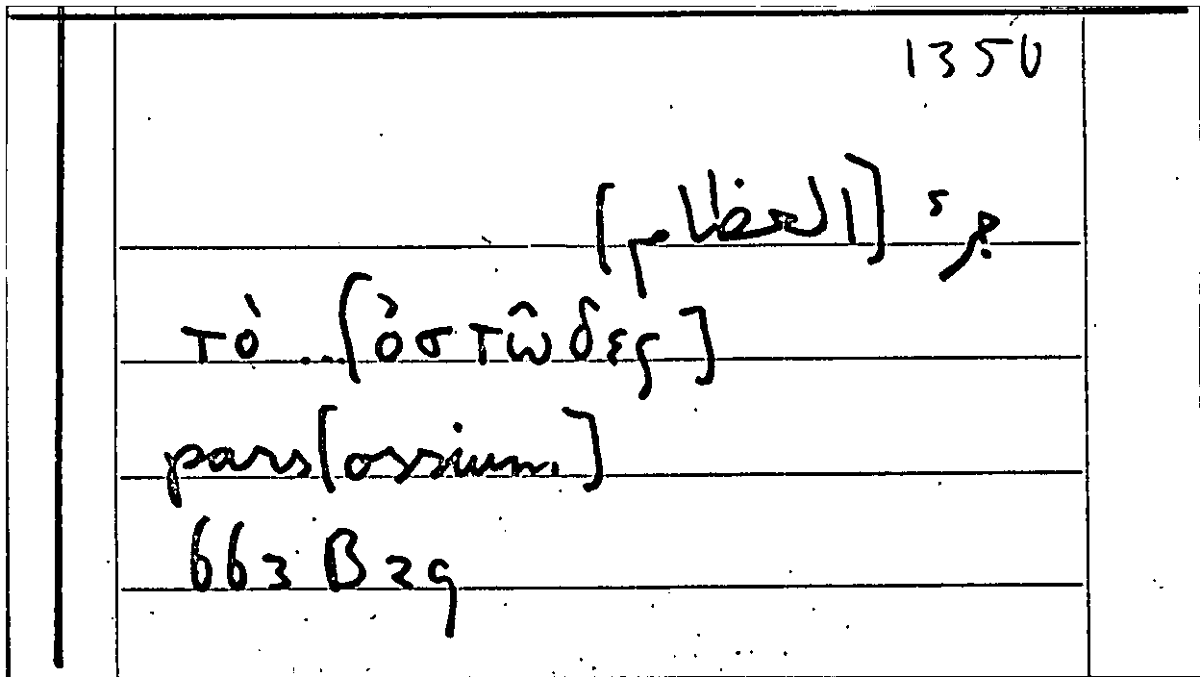 1350
جزء [العظام]
τὸ ... [ὀστῶδες]
pars [ossium]
663 B 29